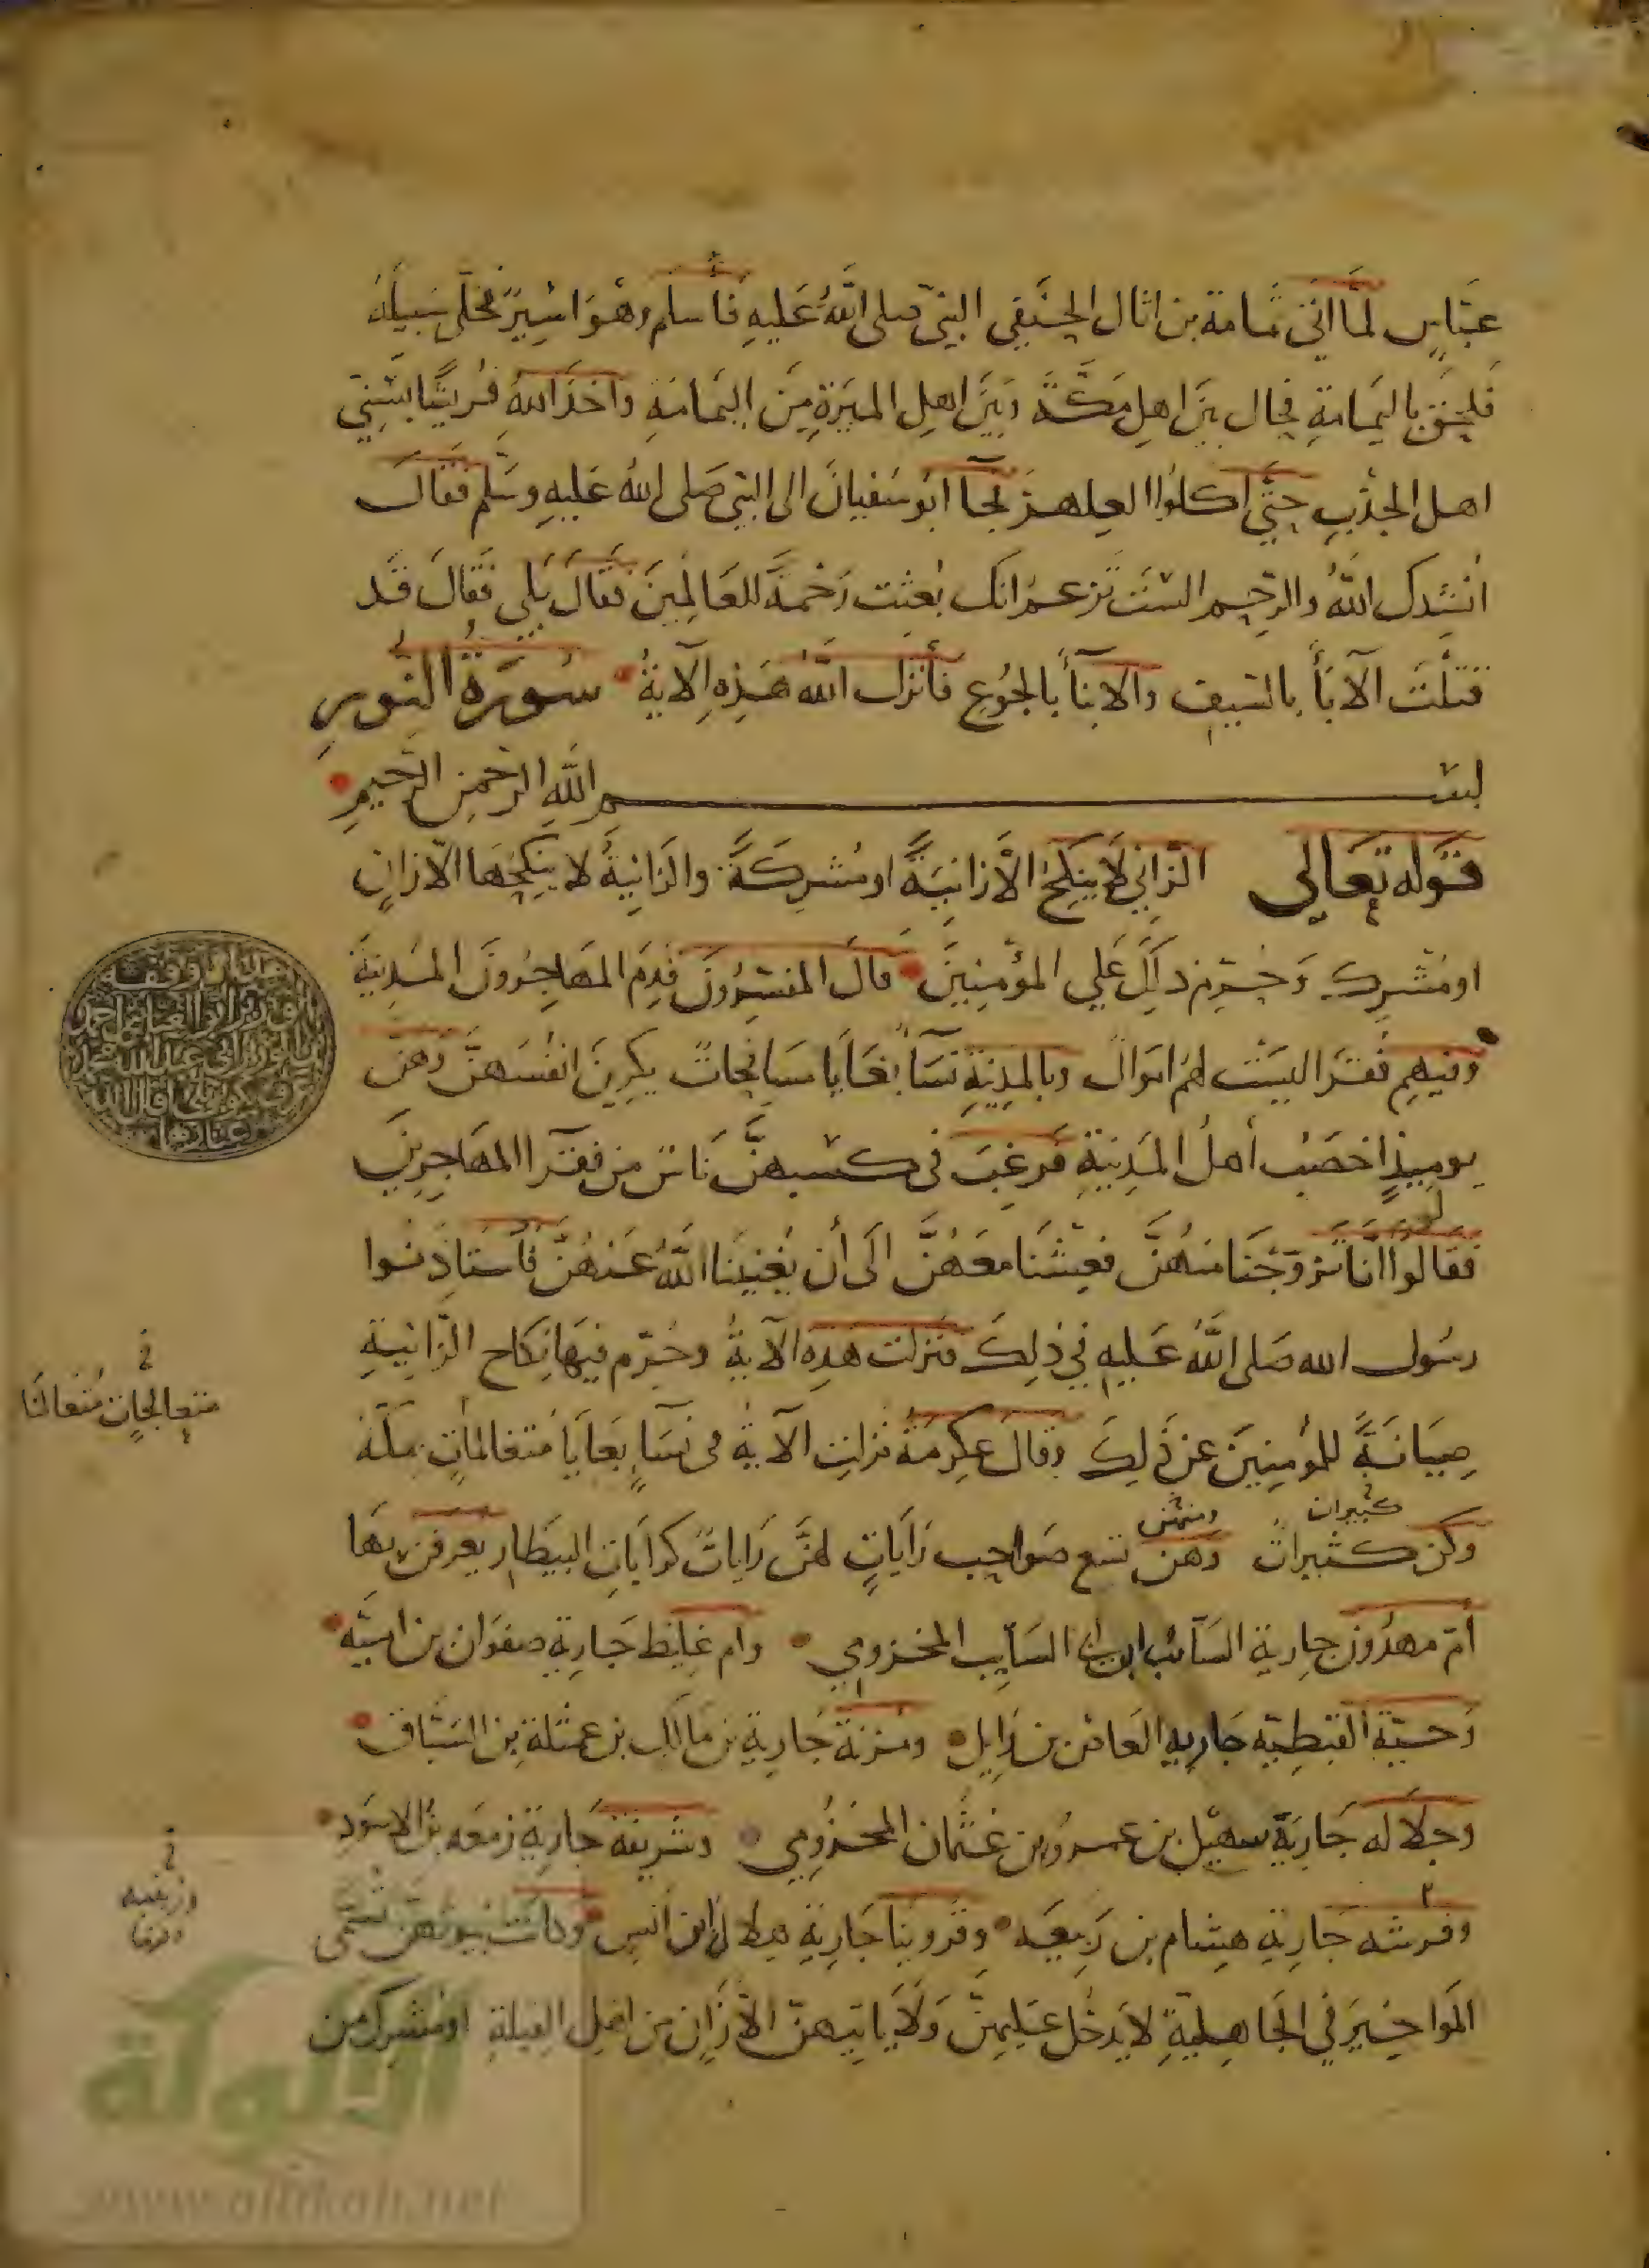 عباس لما اتى ثمامة بن اثال الحنفي النبي صلى الله عليه فاسلم وهو اسير فخلى سبيله
فلحق باليمامة فحال بين اهل مكة وبين اهل الميرة من اليمامة واخذ الله قريشا بسني
اهل الجدب حتى اكلوا العلهز فجآ ابو سفيان الى النبي صلى الله عليه وسلم فقال
انشدك الله والرحم الست تزعم انك بعثت رحمة للعالمين فقال بلى فقال قد
قتلت الآبآ بالسيف والابنآ بالجوع فأنزل الله هذه الآية سورة النور
بسم الله الرحمن الرحيم
قوله تعالى الزاني لا ينكح الا زانية او مشركة والزانية لا ينكحها الا زان
او مشرك وحرم ذلك على المؤمنين قال المفسرون قدم المهاجرون المدينة
وفيهم فقرا ليست لهم اموال وبالمدينة نسآ بغايا مسافحات يكرين انفسهن وهن
يوميذ اخصب أهل المدينة فرغب في كسبهن ناس من فقرآ المهاجرين
فقالوا لو انا تزوجنا منهن فعشنا معهن الى أن يغنينا الله عنهن فاستاذنوا
رسول الله صلى الله عليه في ذلك فنزلت هذه الآية وحرم فيها نكاح الزانية
صيانة للمؤمنين عن ذلك وقال عكرمة نزلت الآية في نسآ بغايا متعالمات بمكة
وكن كثيرات وهن تسع صواحب رايات لهن رايات كرايات البيطار يعرفن بها
كثيرات
ومنهن
أم مهزون جارية السائب ابن ابي السايب المخزومي وام غليظ جارية صفوان بن امية
وحية القبطية جارية العاص بن وايل ومزنة جارية بن مالك بن عمثلة بن السباق
وجلاله جارية سهيل بن عمرو بن عثمان المخزومي وشريفة جارية زمعه بن الاسود
وفرسه جارية هشام بن ربيعه وقروبنا جارية هلال ابن انس وكانت بيوتهن تسمى
المواخير في الجاهلية لا يدخل عليهن ولا ياتيهن الا زان من اهل القبلة او مشرك من
الألوكة
www.alukah.net